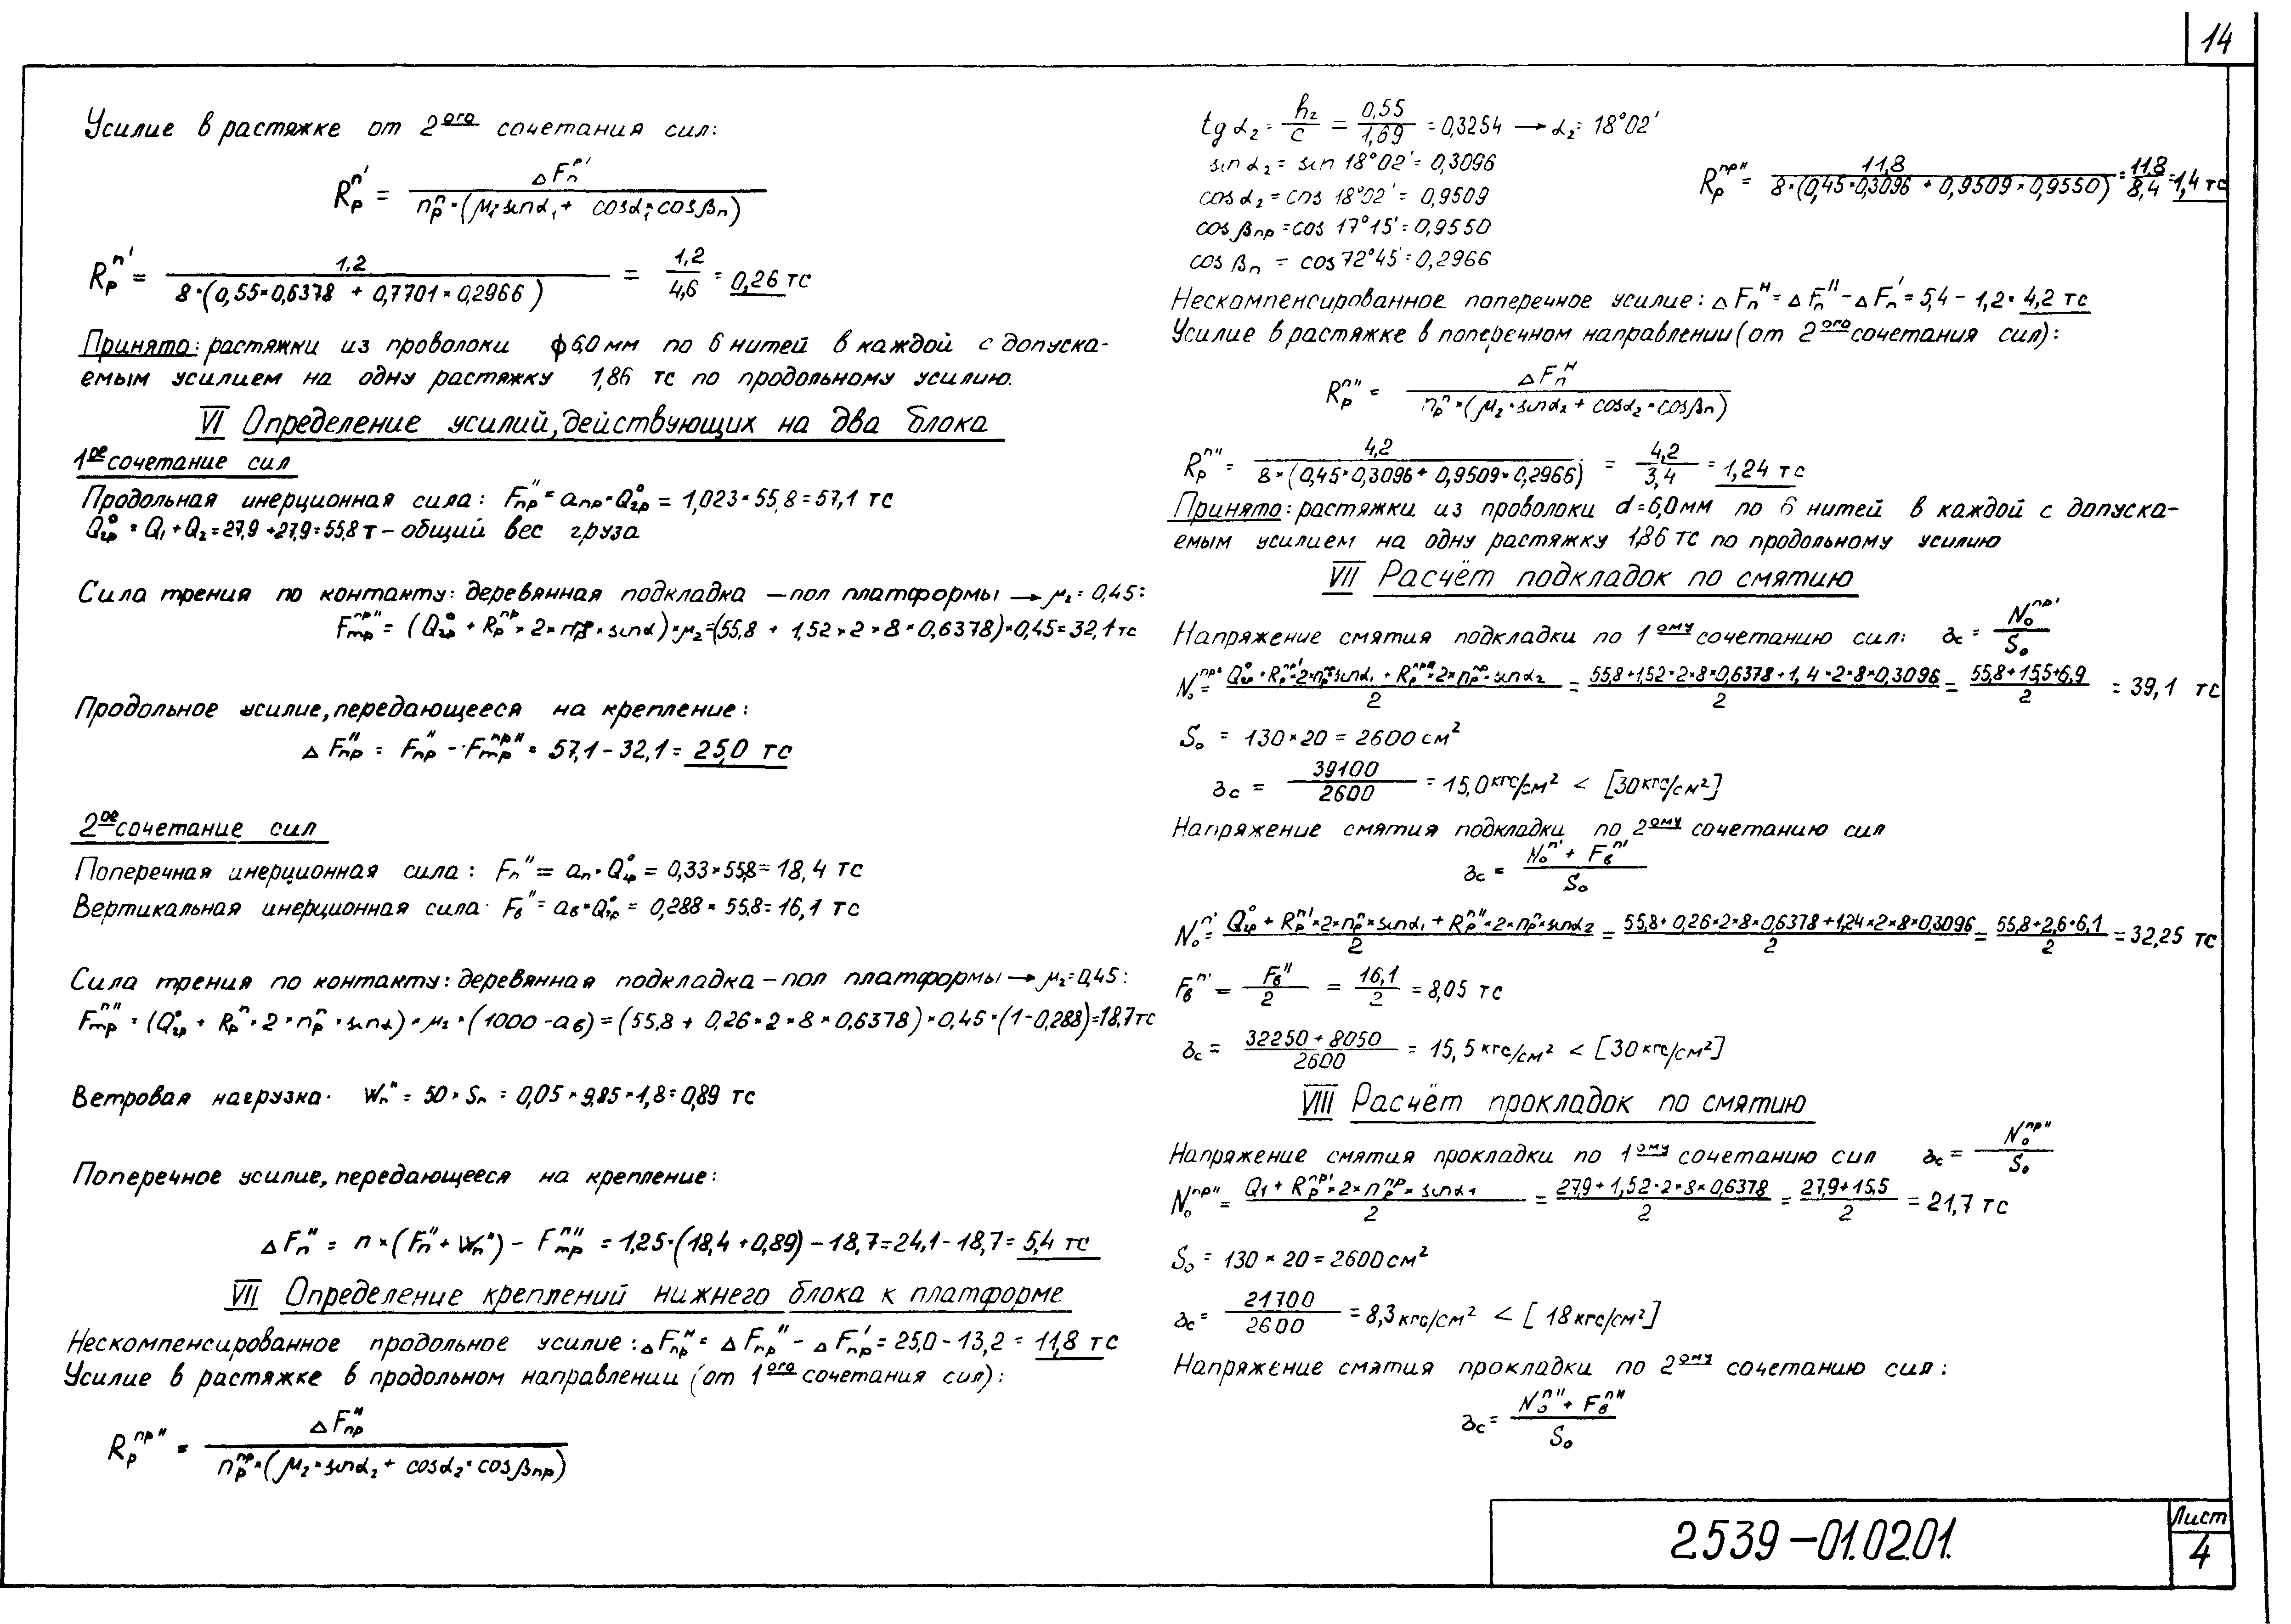 14
Усилие в растяжке от 2ого сочетания сил:
Rрп' = ΔFпр' / nрп × (μ1 × sinα1 + cosα1 × cosβп)
Rрп' = 1,2 / 8 × (0,55 × 0,6378 + 0,7701 × 0,2966) = 1,2 / 4,6 = 0,26 тс
Принято: растяжки из проволоки ϕ 6,0 мм по 6 нитей в каждой с допуска-
емым усилием на одну растяжку 1,86 тс по продольному усилию.
VI Определение усилий, действующих на два блока
1ое сочетание сил
Продольная инерционная сила: Fпр" = aпр × Qгр° = 1,023 × 55,8 = 57,1 тс
Qгр° = Q1 + Q2 = 27,9 + 27,9 = 55,8 т – общий вес груза
Сила трения по контакту: деревянная подкладка – пол платформы → μ2 = 0,45:
Fтрпр" = (Qгр° + Rрпр × 2 × nрпр × sinα) × μ2 = (55,8 + 1,52 × 2 × 8 × 0,6378) × 0,45 = 32,1 тс
Продольное усилие, передающееся на крепление:
ΔFпр" = Fпр" – Fтрпр" = 57,1 – 32,1 = 25,0 тс
2ое сочетание сил
Поперечная инерционная сила: Fп" = aп × Qгр° = 0,33 × 55,8 = 18,4 тс
Вертикальная инерционная сила Fв" = aв × Qгр° = 0,288 × 55,8 = 16,1 тс
Сила трения по контакту: деревянная подкладка – пол платформы → μ2 = 0,45:
Fтрп" = (Qгр° + Rрп × 2 × nрп × sinα) × μ2 × (1000 – aв) = (55,8 + 0,26 × 2 × 8 × 0,6378) × 0,45 × (1 – 0,288) = 18,7 тс
Ветровая нагрузка Wп" = 50 × Sп = 0,05 × 9,85 × 1,8 = 0,89 тс
Поперечное усилие, передающееся на крепление:
ΔFп" = n × (Fп" + Wп") – Fтрп" = 1,25 × (18,4 + 0,89) – 18,7 = 24,1 – 18,7 = 5,4 тс
VII Определение креплений нижнего блока к платформе
Нескомпенсированное продольное усилие: ΔFпрн = ΔFпр" – ΔFпр' = 25,0 – 13,2 = 11,8 тс
Усилие в растяжке в продольном направлении (от 1ого сочетания сил):
Rрпр" = ΔFпрн / nрпр × (μ2 × sinα2 + cosα2 × cosβпр)
tgα2 = h2 / c = 0,55 / 1,69 = 0,3254 → α2 = 18°02'
sinα2 = sin 18°02' = 0,3096
Rрпр" = 11,8 / 8 × (0,45 × 0,3096 + 0,9509 × 0,9550) = 11,8 / 8,4 = 1,4 тс
cosα2 = cos 18°02' = 0,9509
cosβпр = cos 17°15' = 0,9550
cosβп = cos 72°45' = 0,2966
Нескомпенсированное поперечное усилие: ΔFпн = ΔFп" – ΔFп' = 5,4 – 1,2 = 4,2 тс
Усилие в растяжке в поперечном направлении (от 2ого сочетания сил):
Rрп" = ΔFпн / nрп × (μ2 × sinα2 + cosα2 × cosβп)
Rрп" = 4,2 / 8 × (0,45 × 0,3096 + 0,9509 × 0,2966) = 4,2 / 3,4 = 1,24 тс
Принято: растяжки из проволоки d = 6,0 мм по 6 нитей в каждой с допуска-
емым усилием на одну растяжку 1,86 тс по продольному усилию
VII Расчёт подкладок по смятию
Напряжение смятия подкладки по 1ому сочетанию сил: σс = N₀пр' / S₀
N₀пр' = Qгр° + Rрпр' × 2 × nрпр × sinα1 + Rрпр" × 2 × nрпр × sinα2 / 2 = 55,8 + 1,52 × 2 × 8 × 0,6378 + 1,4 × 2 × 8 × 0,3096 / 2 = 55,8 + 15,5 + 6,9 / 2 = 39,1 тс
S₀ = 130 × 20 = 2600 см²
σс = 39100 / 2600 = 15,0 кгс/см² < [30 кгс/см²]
Напряжение смятия подкладки по 2ому сочетанию сил
σс = N₀п' + Fвп' / S₀
N₀п' = Qгр° + Rрп' × 2 × nрп × sinα1 + Rрп" × 2 × nрп × sinα2 / 2 = 55,8 + 0,26 × 2 × 8 × 0,6378 + 1,24 × 2 × 8 × 0,3096 / 2 = 55,8 + 2,6 + 6,1 / 2 = 32,25 тс
Fвп' = Fв" / 2 = 16,1 / 2 = 8,05 тс
σс = 32250 + 8050 / 2600 = 15,5 кгс/см² < [30 кгс/см²]
VIII Расчёт прокладок по смятию
Напряжение смятия прокладки по 1ому сочетанию сил σс = N₀пр" / S₀
N₀пр" = Q1 + Rрпр' × 2 × nрпр × sinα1 / 2 = 27,9 + 1,52 × 2 × 8 × 0,6378 / 2 = 27,9 + 15,5 / 2 = 21,7 тс
S₀ = 130 × 20 = 2600 см²
σс = 21700 / 2600 = 8,3 кгс/см² < [18 кгс/см²]
Напряжение смятия прокладки по 2ому сочетанию сил:
σс = N₀п" + Fвп" / S₀
2539–01.02.01.
Лист
4